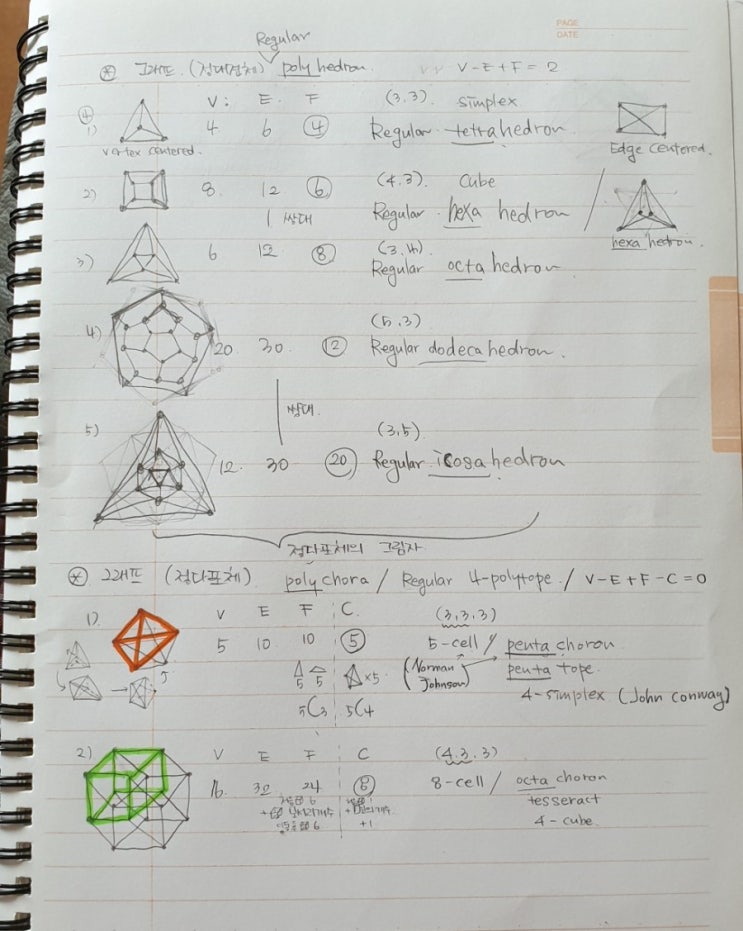 PAGE
DATE
Regular
⊛ 그래프 (정다면체) polyhedron. V-E+F=2
④ V: E. F (3,3). simplex
1) 4 6 ④ Regular tetrahedron.
vertex centered. Edge centered.
2) 8. 12 ⑥ (4,3). Cube
쌍대 Regular hexahedron / hexahedron.
3) 6 12 ⑧ (3,4)
Regular octahedron.
(5,3)
4) 20 30. ⑫ Regular dodecahedron.
쌍대.
5) (3,5)
12. 30 ⑳ Regular icosahedron
정다포체의 그림자
⊛ 그래프 (정다포체) polychora / Regular 4-polytope. / V-E+F-C=0
1). V E F C. (3,3,3)
5 10 10 ⑤ 5-cell / pentachoron.
5
5 5 ×5 (Norman Johnson) pentatope.
5C3 5C4 4-simplex (John conway)
2) V E F C (4,3,3)
16. 32 24 ⑧ 8-cell / octachoron
6 tesseract
6 +1 4-cube.